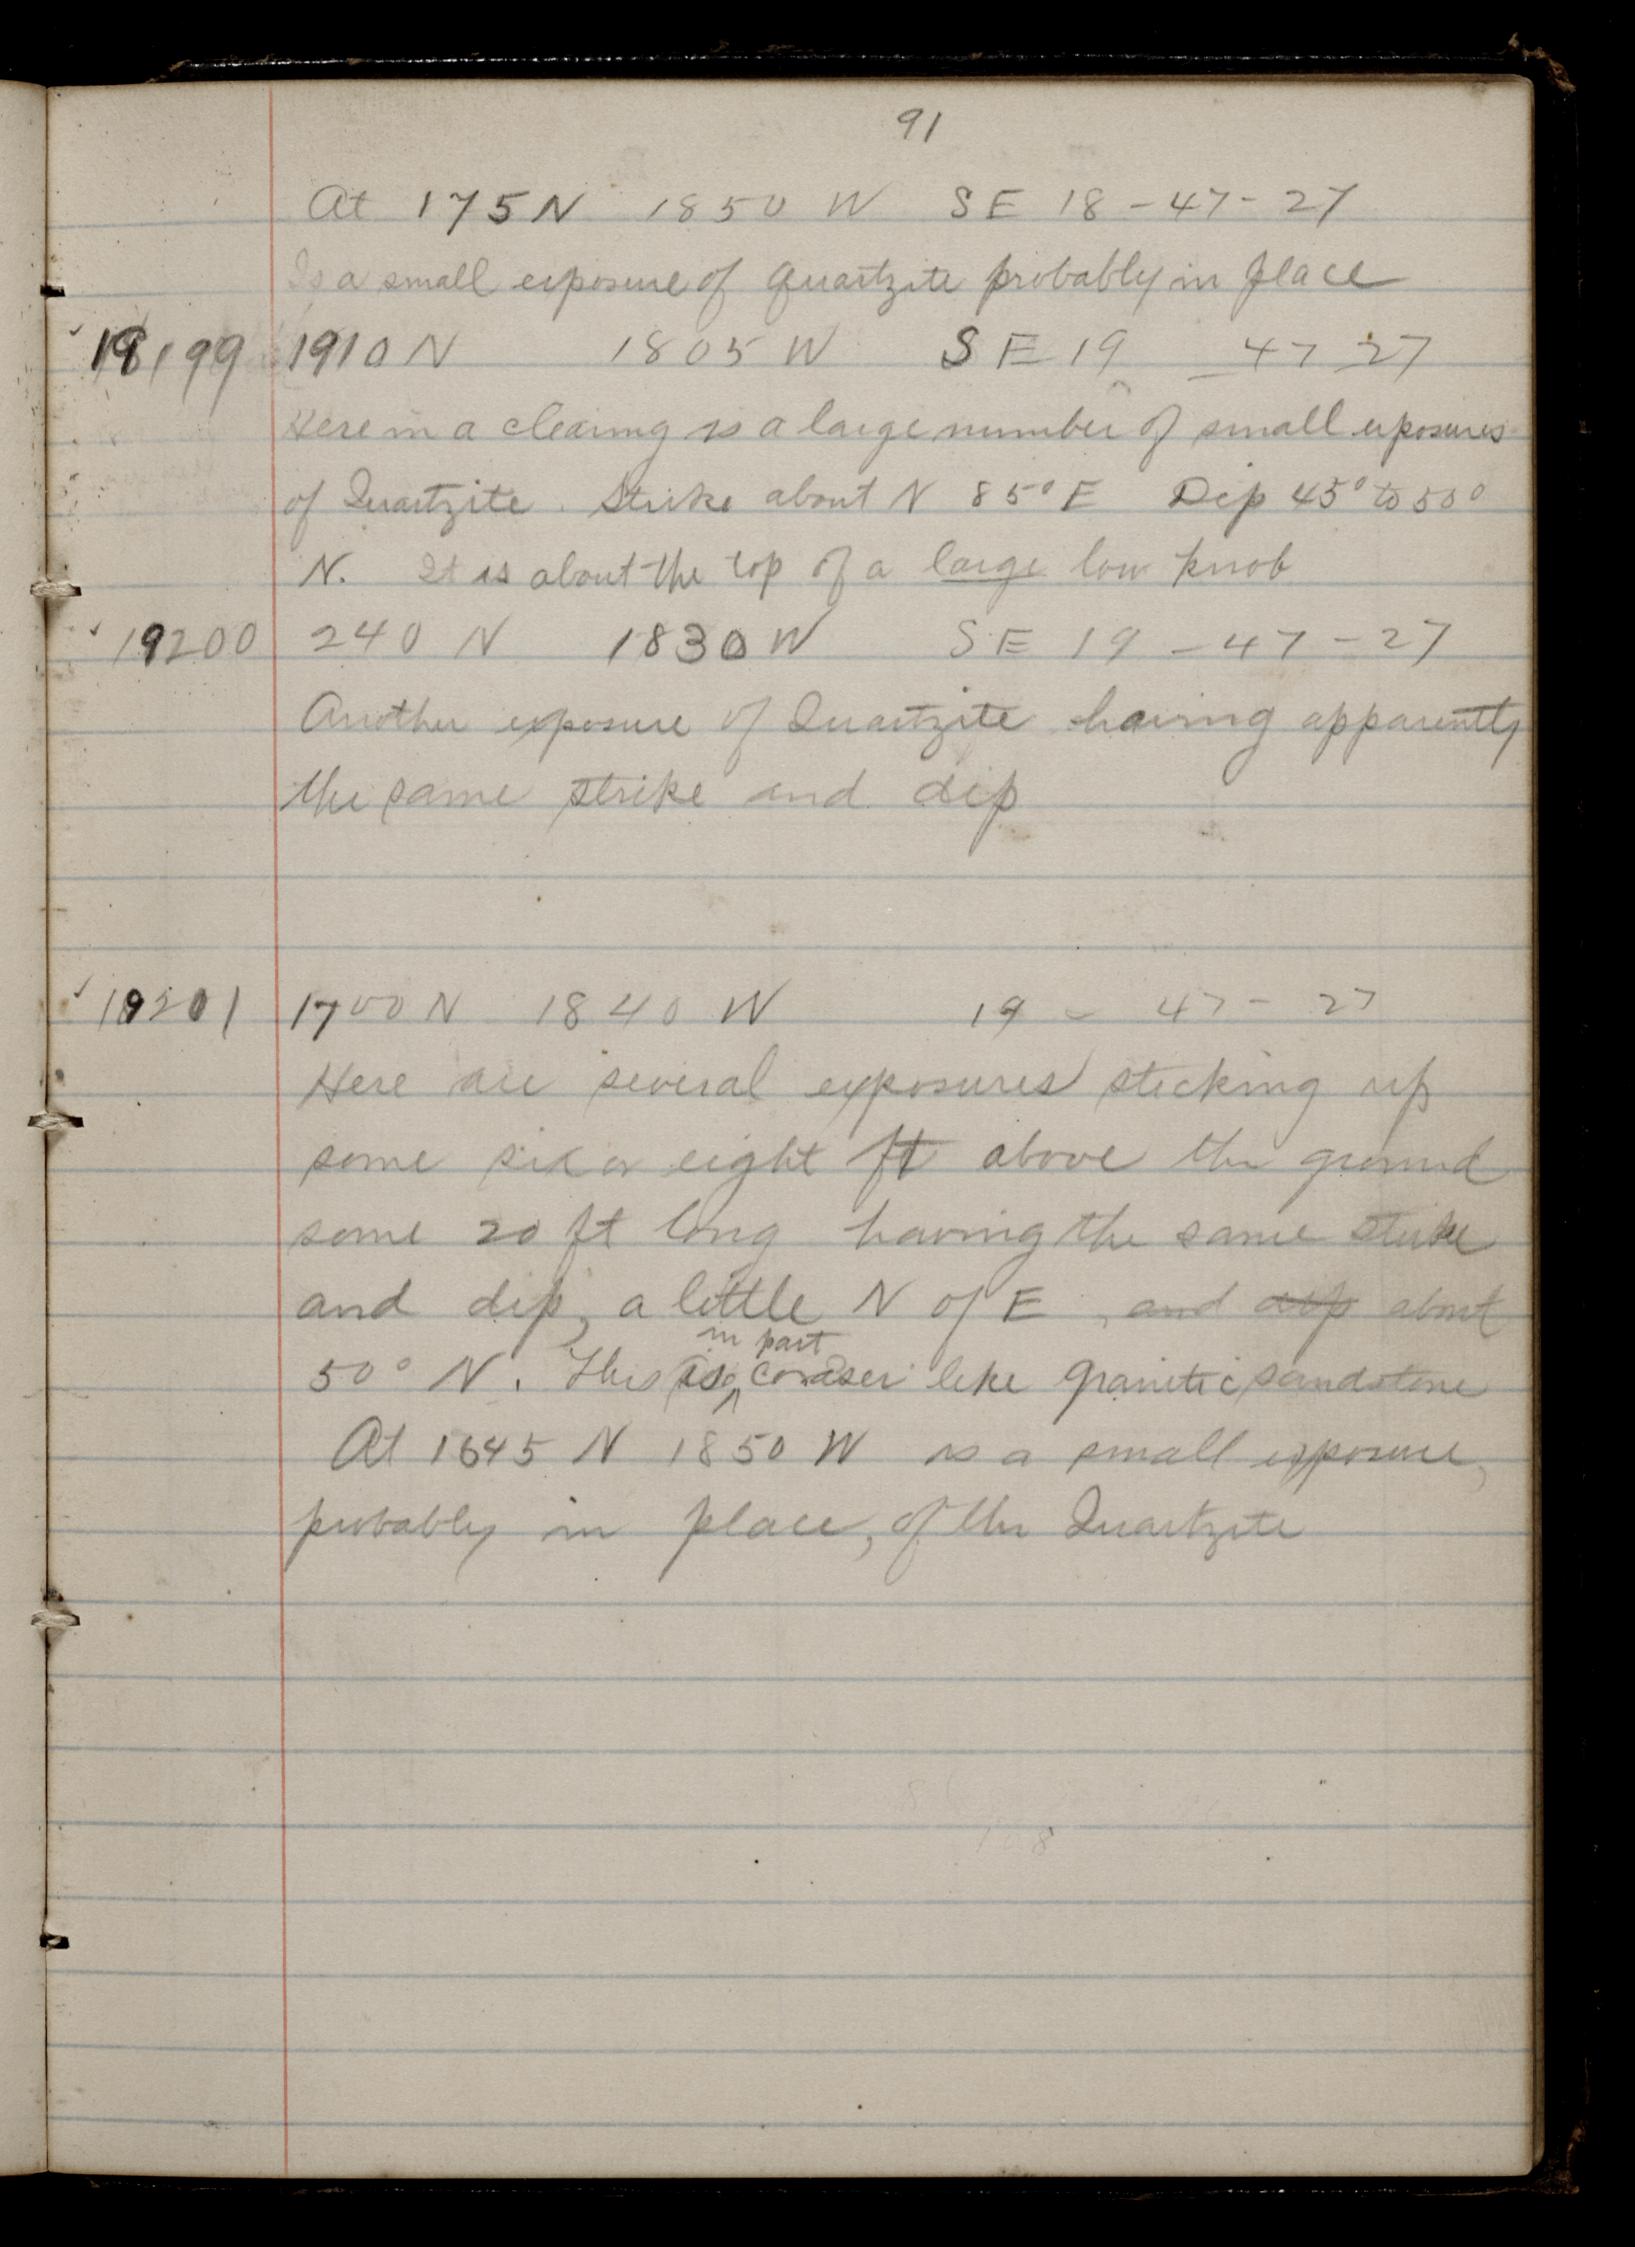 91
At 175 N 1850 W SE 18-47-27
Is a small exposure of Quartzite probably in place
19199 1910 N 1805 W SE 19 _ 47 _ 27
Here in a clearing is a large number of small exposures
of Quartzite. Strike about N 85° E Dip 45° to 50°
N. It is about the top of a large low knob
19200 240 N 1830 W SE 19 - 47 - 27
Another exposure of Quartzite having apparently
the same strike and dip
19201 1700 N 1840 W 19 - 47 - 27
Here are several exposures sticking up
some six or eight ft above the ground
some 20 ft long having the same strike
and dip, a little N of E, and dip about
in part
50° N. This is coraser like granitic sandstone
At 1645 N 1850 W is a small exposure,
probably in place, of the Quartzite